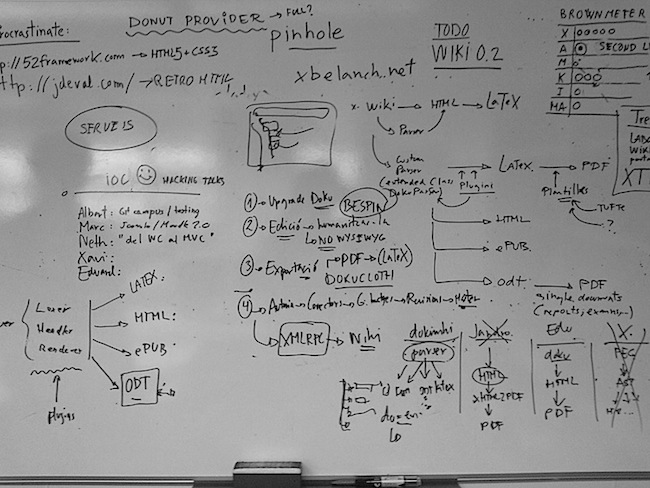 procrastinate:
p://52framework.com → HTML5+CSS3
http://jdeval.com/ → RETRO HTML
DONUT PROVIDER → FULL?
pinhole
xbelanch.net
TODO
WIKI 0.2
BROWNMETER
X 00000
A SECOND L
M
K 000
I 0
MA 0
SERVEIS
IOC HACKING TALKS
Albert: Git campus/testing
Marc: Joomla/Moodle 2.0
Neth: "del WC al MVC"
Xavi:
Eduard:
Lexer
Handler
Renderer
plugins
LATEX:
HTML:
ePUB:
ODT
x. Wiki → HTML → LaTeX
Parser
Custom
Parser
(extended class
DokuParser)
Plugins
LaTex. → PDF
Plantilles
TUFTE
?
HTML
ePUB.
odt. → PDF
single documents
(reports, examns...)
1 Upgrade Doku BESPIN
2 Edició → humanitzar-la
Lo NO WYSIWYG
3 Exportació → PDF → (LaTeX)
DOKUCLOTH
4 → Revisions →
XMLRPC → Niki
dokuwiki
parser
Jandro.
HTML
XHTML2PDF
PDF
Edu
doku
HTML
PDF
X.
PEG
AST
Tre
LADO
WIKI
XT